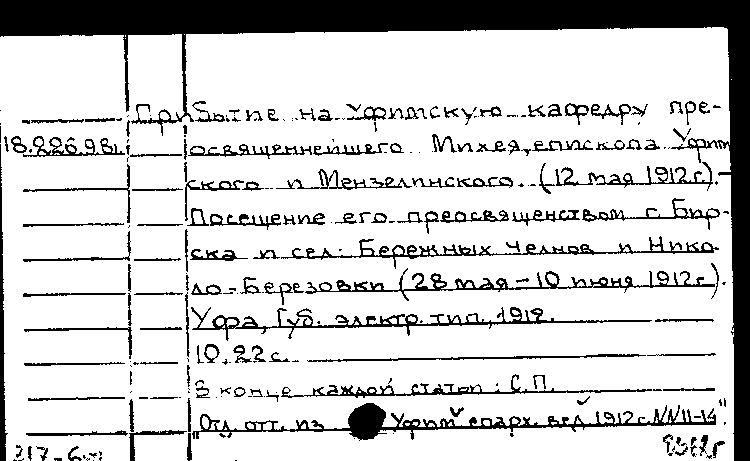 Прибытие на Уфимскую кафедру пре-
18.226.98
освященнейшего Михея, епископа Уфим
ского и Мензелинского. (12 мая 1912 г.).-
Посещение его преосвященством г. Бир-
ска и сел: Бережных Челнов и Нико-
ло-Березовки (28 мая - 10 июня 1912 г.).
Уфа, Губ. электр. тип., 1912.
10, 22 с.
В конце каждой статьи: С.П.
"Отд. отт. из Уфим. епарх. вед. 1912 г. NN 11-14".